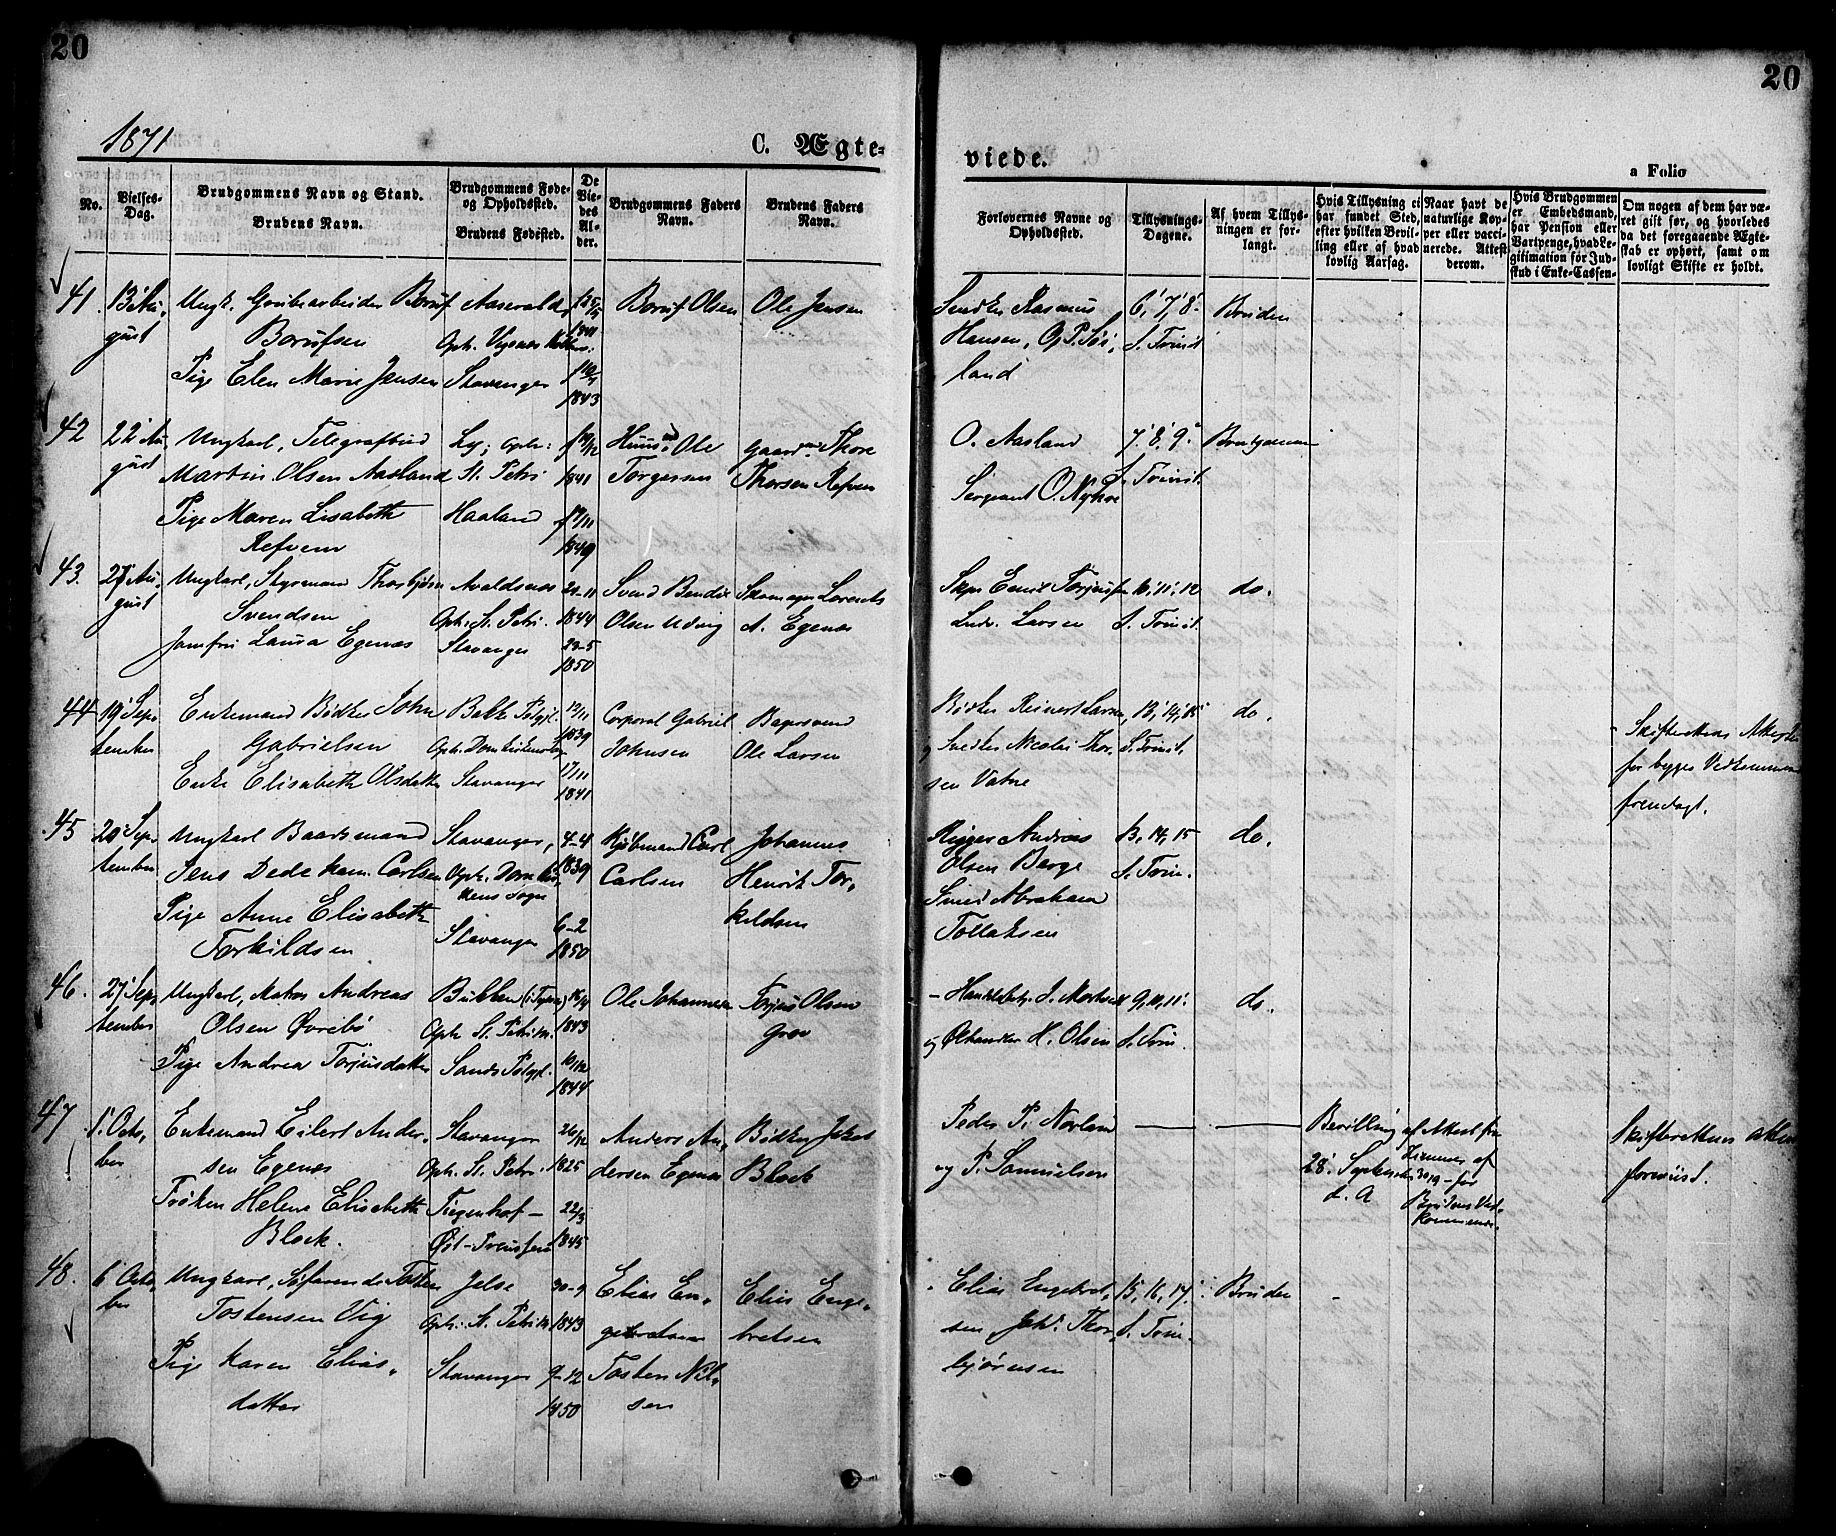 20
20
1871
C. Ægte-
viede.
a Folio
No.
Vielses-
Dag.
Brudgommens Navn og Stand.
Brudens Navn.
Brudgommens Føde-
og Opholdssted.
Brudens Fødested.
De
Vie-
des
Al-
der.
Brudgommens Faders
Navn.
Brudens Faders
Navn.
Forlovernes Navne og
Opholdssted.
Tillysnings-
Dagene.
Af hvem Tillys-
ningen er for-
langt.
Hvis Tillysning ei
har fundet Sted,
efter hvilken Bevil-
ling eller af hvad
lovlig Aarsag.
Naar havt de
naturlige Kop-
per eller vacci-
nerede. Attest
derom.
Hvis Brudgommen
er Embedsmand,
har Pension eller
Vartpenge, hvad Le-
gitimation for Ind-
skud i Enke-Cassen
Om nogen af dem har væ-
ret gift før, og hvorledes
da det foregaaende Ægte-
skab er ophørt, samt om
lovligt Skifte er holdt.
41. 13 Au-
gust
Ungk. Grubearbeider Boruf
Borufsen
Pige Elen Marie Jensen
Oph. Vigsnæs
Stavanger
1843
Boruf Olsen
Ole Jensen
Rasmus
Hansen,
land
6, 7, 8
S. Trinit
Bruden
42
22 Au-
gust
Ungkarl, Telegrafbud
Martin Olsen Aasland
Pige Maren Lisabeth
Refvem
Oph:
St. Petri
Haaland
1841
17/11
1849
Huusmd Ole
Torgersen
Gaardm. Thore
Thorsen Refvem
O. Aasland
Sergeant O.
7. 8. 9.
S. Trinit.
Brudgommen
43.
27 Au-
gust
Ungkarl, Styrmand Thorbjørn
Svendsen
Jomfru Laura Egenæs
Avaldsnæs
Oph. St. Petri.
Stavanger
1844
23-5
1850
Svend
Olsen
Lorents
A. Egenæs
Emil
Larsen
10, 11, 12
S. Trinit.
do.
44
19 Sep-
tember
Enkemand Bødker John
Gabrielsen
Enke Elisabeth Olsdatter
Oph. Domkirkens Sogn
Stavanger
1839
17/11
1841
Corporal Gabriel
Johnsen
Ole Larsen
Bødker Reinert Larsen,
og Nicolai Thor-
sen Vatne
13, 14, 15
S. Trinit.
do.
Skifterettens Attester
for begge Vedkommende
fremlagt.
45
20 Sep-
tember
Ungkarl Baadsmand
Jens Dedekam Carlsen
Pige Anne Elisabeth
Torkildsen
Stavanger,
Oph. Domkir-
kens Sogn
Stavanger
4-4
1839
6-2
1850
Kjøbmand Carl
Carlsen
Johannes
Henrik Tor-
kildsen
Rigger Andreas
Olsen Berge
Smed Abraham
Tollaksen
13, 14, 15
S. Trin.
do.
46.
27 Sep-
tember
Ungkarl, Matros Andreas
Olsen Øvrebø
Pige Andrea Torjusdatter
Oph. St. Petri M.
Sands Præstgjl.
1843
16/12
1844
Ole Johannesen
Torjus Olsen
Grov
J.
og Ølhandler H. Olsen
9, 10, 11
S. Trin.
do.
47
1 Octo-
ber
Enkemand Eilert Ander-
sen Egenæs
Frøken Helene Elisabeth
Block.
Stavanger
Oph. St. Petri.
Tiegenhof -
Øst-Preussen
26/12
1825
22/3
1845
Anders An-
dersen Egenæs
Bødker Jakob
Block
Peder P. Norland
og P. Samuelsen
Bevilling af
28. September
d. A
Attest fra
af
for
Brudens Ved-
kommende.
Skifterettens Attest
forevist.
48.
6 Octo-
ber
Ungkarl, Søfarende Tosten
Tostensen Vig
Pige Karen Elias-
datter
Jelse
Oph. St. Petri M.
Stavanger
30-9
1843
9-12
1850
Elias En-
gebretsen
Tosten Nil-
sen
Elias Enge-
bretsen
Elias Engebret-
sen, Joh. Thor-
bjørnsen
15, 16, 17.
S. Trin.
Bruden